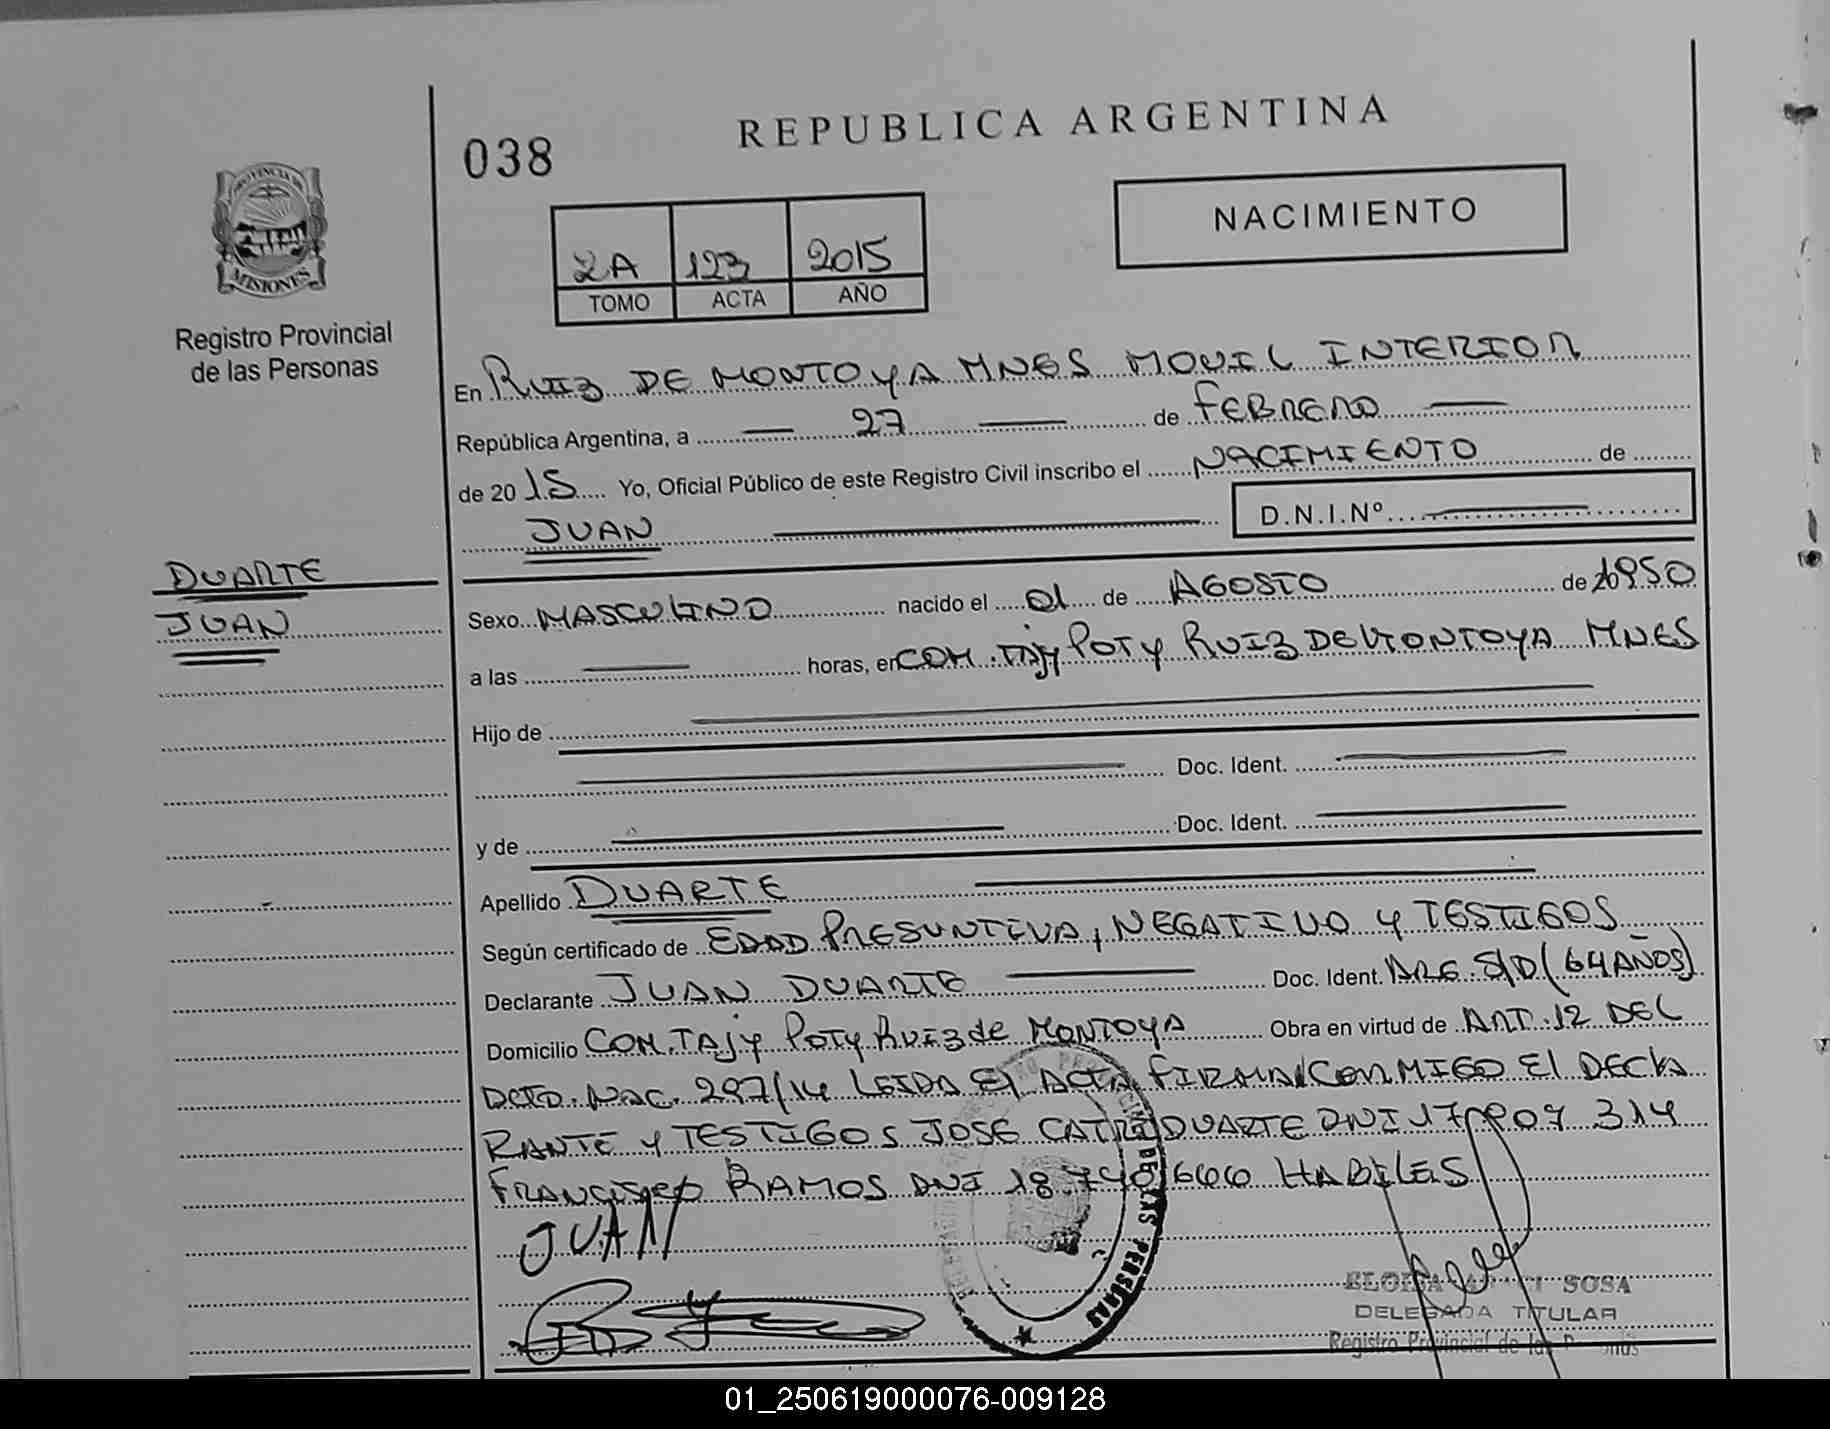 REPUBLICA ARGENTINA
038
NACIMIENTO
2A 123 2015
TOMO ACTA AÑO
PROVINCIA DE
MISIONES
Registro Provincial
de las Personas
En RUIZ DE MONTOYA MNES MOVIL INTERIOR
República Argentina, a 27 de FEBRERO
de 20 15 Yo, Oficial Público de este Registro Civil inscribo el NACIMIENTO de
JUAN D.N.I.Nº
DUARTE
JUAN
Sexo MASCULINO nacido el 01 de AGOSTO de 1950
a las horas, en COM. TAJY POTY RUIZ DE MONTOYA MNES
Hijo de
Doc. Ident.
y de Doc. Ident.
Apellido DUARTE
Según certificado de EDAD PRESUNTIVA, NEGATIVO Y TESTIGOS
Declarante JUAN DUARTE Doc. Ident. ARG. S/D (64 AÑOS)
Domicilio COM. TAJY POTY RUIZ de MONTOYA Obra en virtud de ART. 12 DEL
DCTO. NAC. 297/14 LEIDA El ACTA FIRMAN CONMIGO El DECLA
RANTE Y TESTIGOS JOSE DUARTE DNI 314
FRANCISCO RAMOS DNI 18.740.600 HABILES
JUAN
SOSA
DELEGADA TITULAR
Registro Provincial de las Personas
01_250619000076-009128